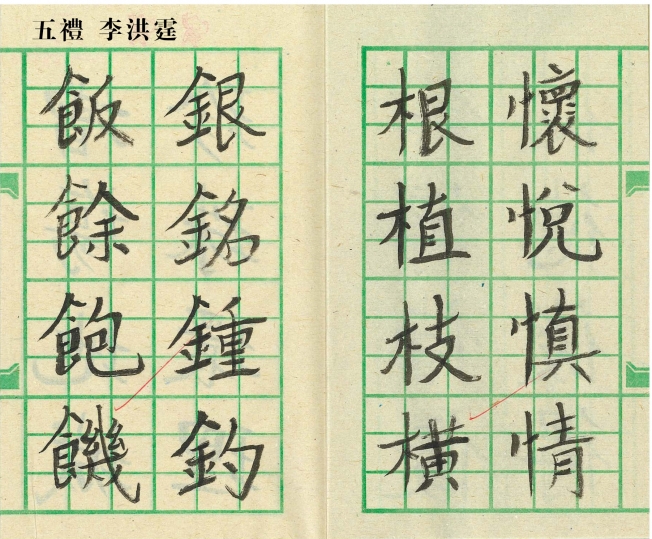 五禮 李洪霆
懷悅慎情
根植枝橫
銀銘鍾釣
飯餘飽饑